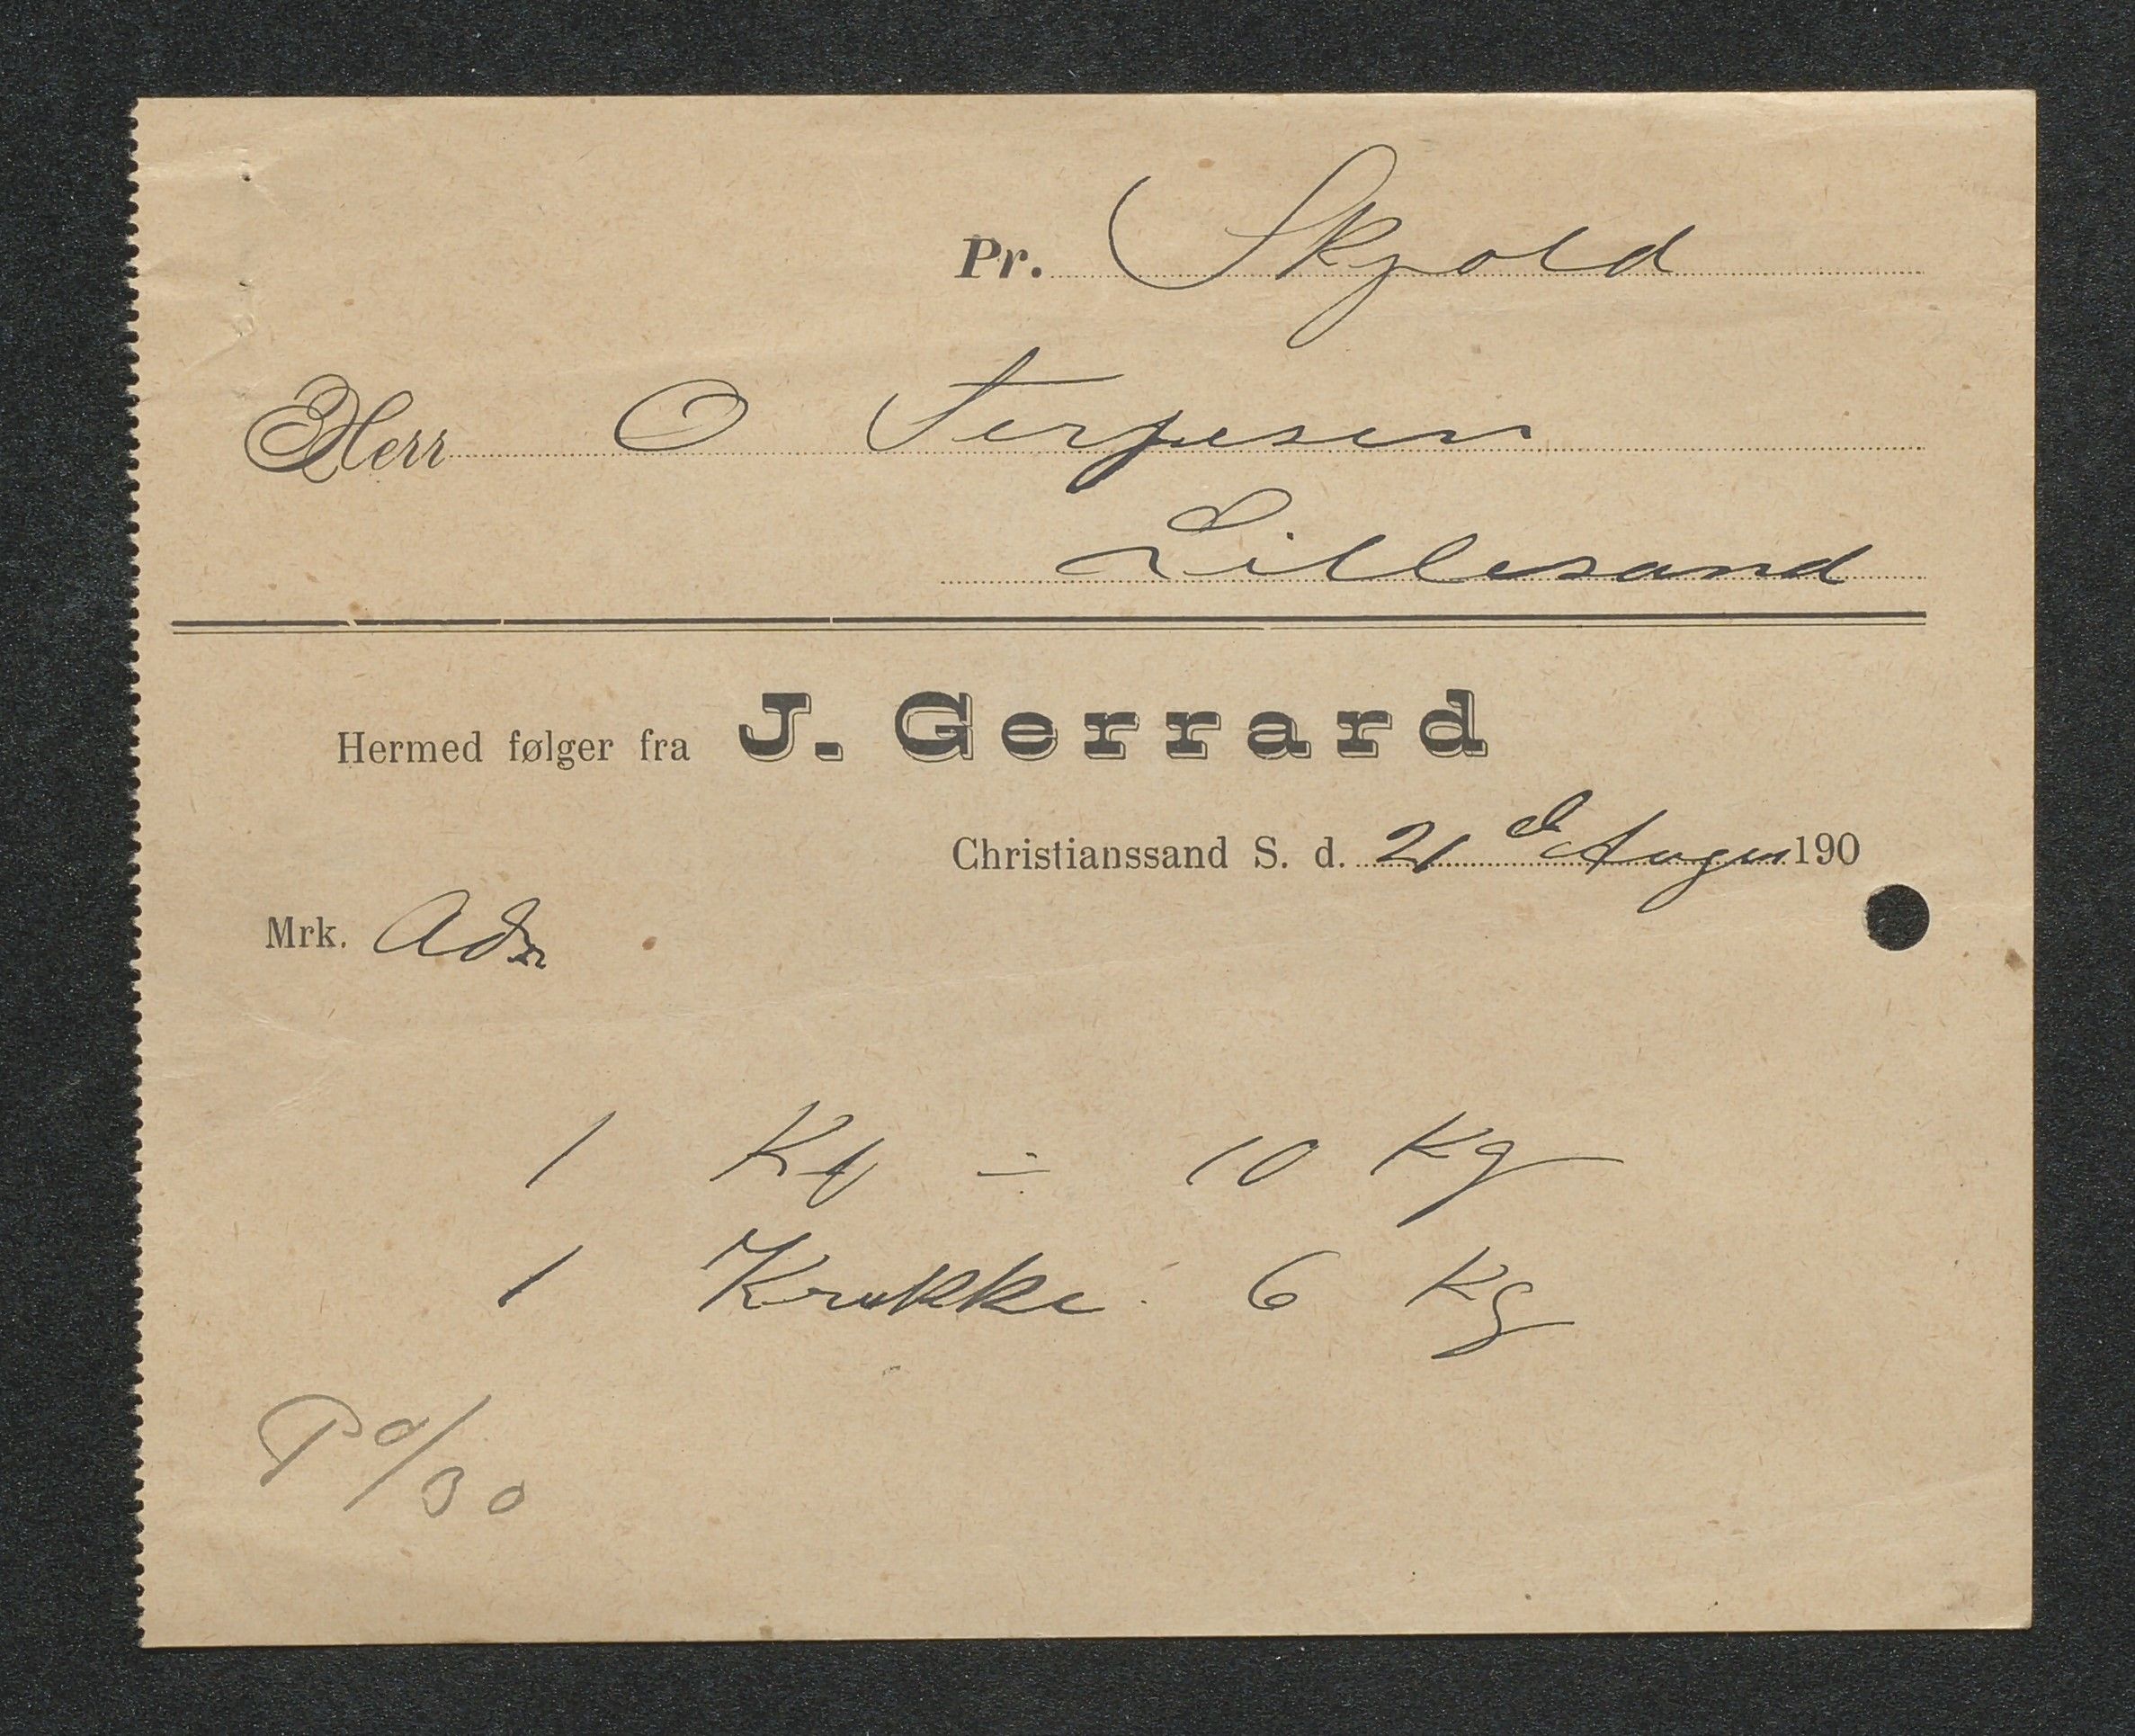 Pr. Skjold
Herr O Terjesen
Lillesand
Hermed følger fra J. Gerrard
Christianssand S. d. 21 de August 190
Mrk. Adr
1 Kf = 10 Kg
1 Krukke 6 Kg